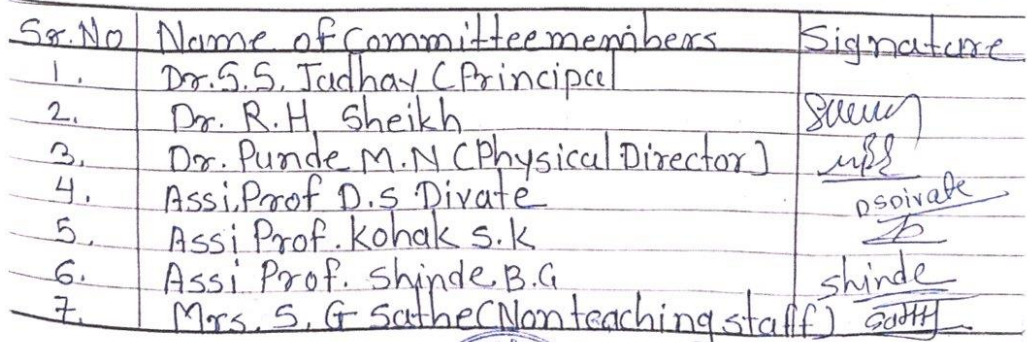 Sr.No Name of Committee members Signature
1. Dr.S.S. Jadhav (Principal
2. Dr. R.H. Sheikh
3. Dr. Punde M.N (Physical Director)
4. Assi.Prof D.S Divate DSDivate
5. Assi Prof. Kohak S.K
6. Assi Prof. Shinde.B.G Shinde
7. Mrs. S. G Sathe (Nonteaching staff)